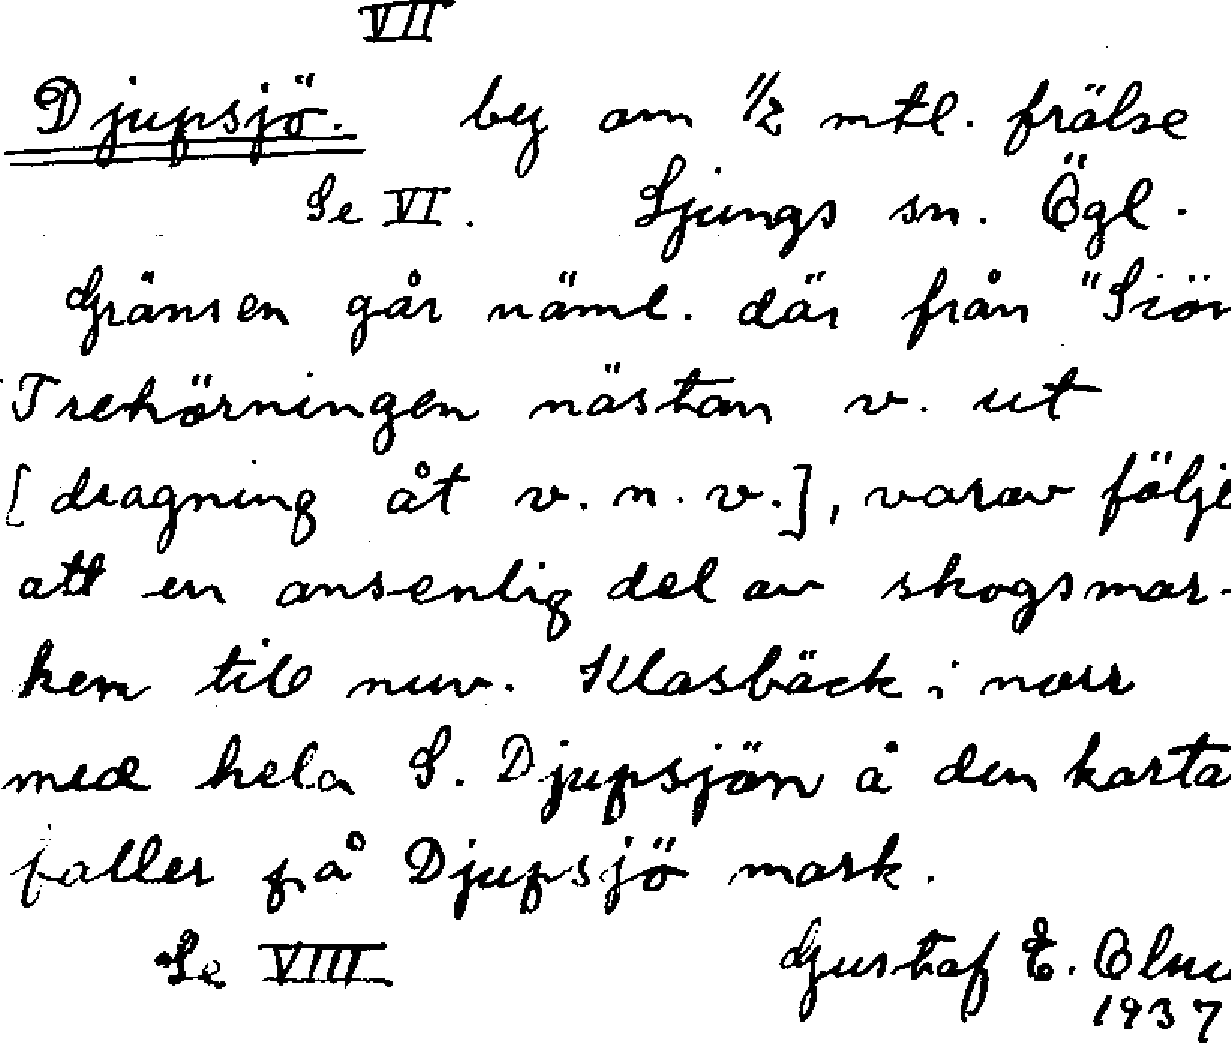 VII
Djupsjö. by om 1/2 mtl. frälse
Se VI. Ljungs sn. Ögl.
Gränsen går näml. där från "Siön
Trehörningen nästan v. ut
[dragning åt v. n. v.], varav följe
att en ansenlig del av skogsmar-
ken till nuv. Klasbäck i norr
med hela S. Djupsjön å den karta
faller på Djupsjö mark.
Se VIII Gustaf E.
1937